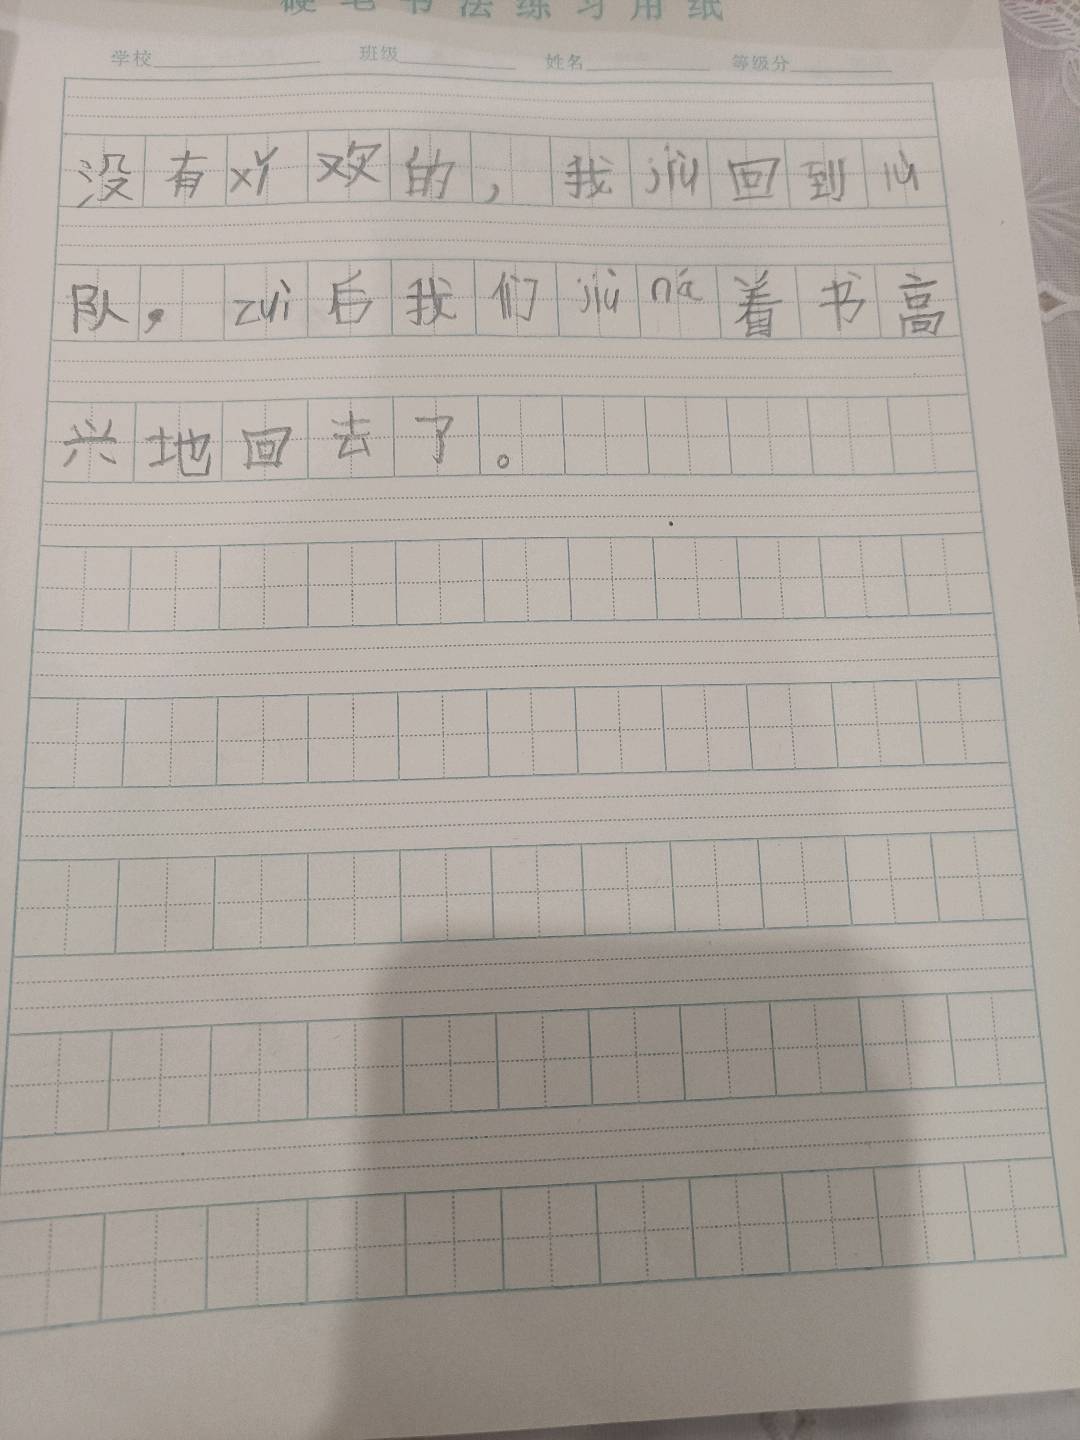 硬笔书法练习用纸
学校 班级 姓名 等级分
没有xǐ欢的，我jiù回到lǜ
队，zuì后我们jiù ná着书高
兴地回去了。